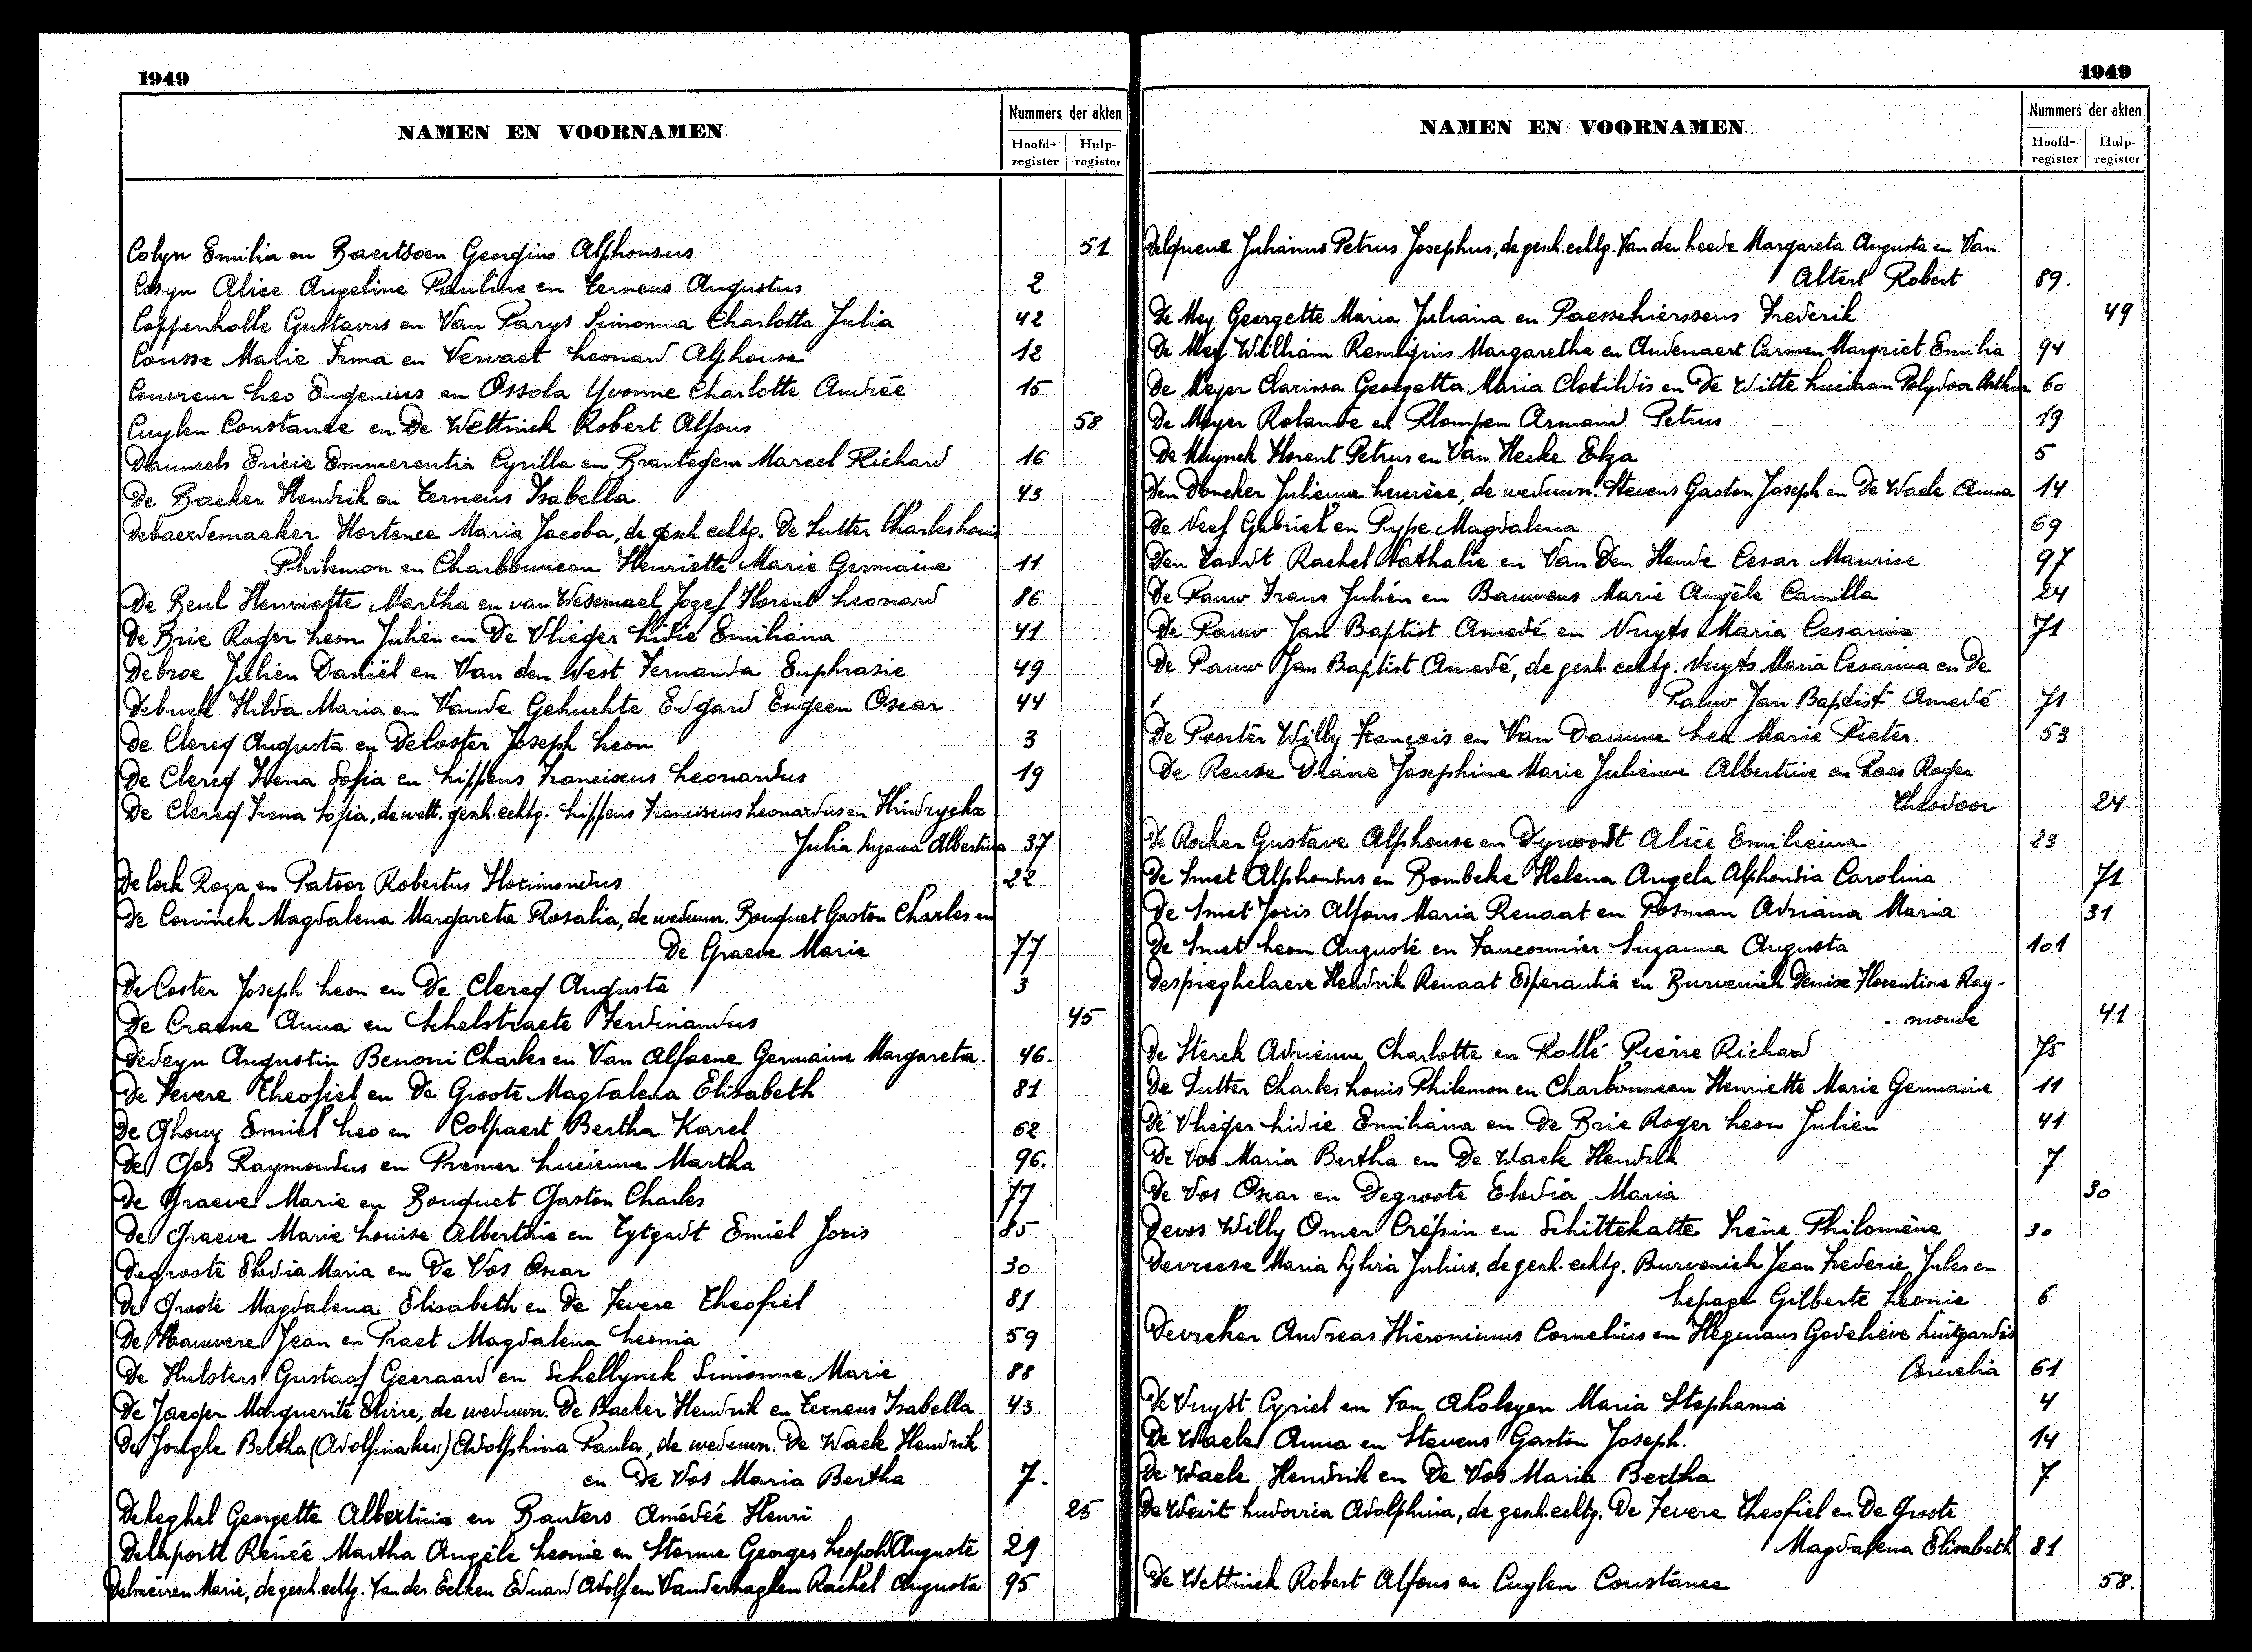 1949
NAMEN EN VOORNAMEN
Nummers der akten
Hoofd-register
Hulp-register
Colyn Emilia en Baertsoen Georgius Alphonsus 51
Cosyn Alice Angeline Pauline en Terneus Augustus 2
Coppenholle Gustavus en Van Parys Simonna Charlotta Julia 42
Cousse Marie Irma en Vervaet Leonard Alphonse 12
Couvreur Leo Eugenius en Ossola Yvonne Charlotte Andrée 15
Cuylen Constance en De Wettinck Robert Alfons 58
Dauwels Emmerentia Cyrilla en Brantegem Marcel Richard 16
De Backer Hendrik en Terneus Isabella 43
Debaerdemaeker Hortence Maria Jacoba, de gesch. echtg. De Sutter Charles Louis
Philemon en Charbonneau Henriette Marie Germaine 11
De Beul Henriette Martha en van Wesemael Jozef Florent Leonard 86.
De Brie Roger Leon Julien en De Vlieger Lidie Emiliana 41
Debroe Julien Daniël en Van den West Fernanda Euphrasie 49
Debuck Hilda Maria en Vande Gehuchte Edgard Eugeen Oscar 44
De Clercq Augusta en De Coster Joseph Leon 3
De Clercq Irena Sofia en Lippens Franciscus Leonardus 19
De Clercq Irena Sofia, de wett. gesch. echtg. Lippens Franciscus Leonardus en Hindryckx
Julia Suzanna Albertina 37
De Cock Roza en Patoor Robertus Florimondus 22
De Coninck Magdalena Margareta Rosalia, de weduwn. Bouquet Gaston Charles en
De Graeve Marie 77
De Coster Joseph Leon en De Clercq Augusta 3
De Craene Anna en Schelstraete Ferdinandus 45
Dedeyn Augustin Benoni Charles en Van Alfaene Germaine Margareta. 46.
De Fevere Theofiel en De Groote Magdalena Elisabeth 81
De Ghouy Emiel Leo en Colpaert Bertha Karel 62
De Gols Raymondus en Premer Lucienne Martha 96.
De Graeve Marie en Bouquet Gaston Charles 77
De Graeve Marie Louise Albertine en Tytgadt Emiel Joris 85
Degroote Elodia Maria en De Vos Oscar 30
De Groote Magdalena Elisabeth en De Fevere Theofiel 81
De Hauwere Jean en Praet Magdalena Leonia 59
De Hulsters Gustaaf Geeraard en Schellynck Simonne Marie 88
De Jaeger Marguerite Elvire, de weduwn. De Backer Hendrik en Terneus Isabella 43.
De Jongle Bertha (Adolfina kes:) Adolphina Paula, de weduwn. De Waele Hendrik
en De Vos Maria Bertha 7.
Dekeghel Georgette Albertina en Bauters Amédéé Henri 25
Delaporte Renéé Martha Angèle Leonie en Storme Georges Leopold Auguste 29
Delmeiren Marie, de gesch. echtg. Van der Eecken Eduard Adolf en Vanderhaghen Rachel Augusta 95
1949
NAMEN EN VOORNAMEN
Nummers der akten
Hoofd-register
Hulp-register
Julianus Petrus Josephus, de gesch. echtg. Van den heede Margareta Augusta en Van
Altert Robert 89.
De Mey Georgette Maria Juliana en Paesschierssens Frederik 49
De Mey William Remigius Margaretha en Audenaert Carmen Margriet Emilia 94
De Meyer Clarissa Georgetta Maria Clotildis en De Witte Luciaan Polydoor Arthur 60
De Meyer Rolande en Plompen Armand Petrus 19
De Muynck Florent Petrus en Van Hecke Elza 5
Den Doncker Julienne Lucrèce, de weduwn. Stevens Gaston Joseph en De Waele Anna 14
De Neef Gabriel en Pype Magdalena 69
Den Tandt Rachel Nathalie en Van Den Hende Cesar Maurice 97
De Pauw Frans Julien en Bauwens Marie Angèle Camilla 24
De Pauw Jan Baptist Amedé en Nuyts Maria Cesarina 71
De Pauw Jan Baptist Amedé, de gesch. echtg. Nuyts Maria Cesarina en De
Pauw Jan Baptist Amedé 71
De Poorter Willy François en Van Damme Lea Marie Pieter. 53
De Reuse Diane Josephine Marie Julienne Albertine en Raes Roger
Theodoor 24
De Rocker Gustave Alphonse en Dywoodt Alice Emilienne 23
De Smet Alphondus en Bombeke Helena Angela Alphondia Carolina 71
De Smet Joris Alfons Maria Renaat en Posman Adriana Maria 31
De Smet Leon Auguste en Fauconnier Suzanna Augusta 101
Despieghelaere Hendrik Renaat Esperantia en Burvenich Denise Florentine Ray-
monde 41
De Sterck Adrienne Charlotte en Rollé Pierre Richard 75
De Sutter Charles Louis Philemon en Charbonneau Henriette Marie Germaine 11
De Vlieger Lidie Emiliana en De Brie Roger Leon Julien 41
De Vos Maria Bertha en De Waele Hendrik 7
De Vos Oscar en Degroote Elodia Maria 30
Devos Willy Omer Crépin en Schittekatte Irène Philomène 30
Devreese Maria Sylvia Julius, de gesch. echtg. Burvenich Jean Frederic Jules en
Lepage Gilberte Leonie 6
Devreker Andreas Hieronimus Cornelius en Hegmans Godelieve Luitgardis
Cornelia 61
De Vuyst Cyriel en Van Akoleyen Maria Stephania 4
De Waele Anna en Stevens Gaston Joseph. 14
De Waele Hendrik en De Vos Maria Bertha 7
De Weirt Ludovica Adolphina, de gesch. echtg. De Fevere Theofiel en De Groote
Magdalena Elisabeth 81
De Wettinck Robert Alfons en Cuylen Constance 58.